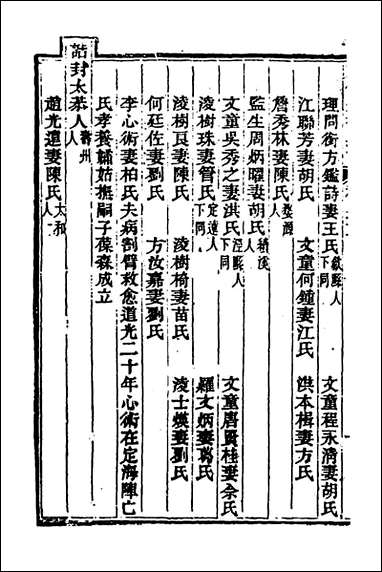 理問銜方鑑詩妻王氏歙縣人下同 文童程永清妻胡氏
江聯芳妻胡氏 文童何鍾妻江氏 洪本楫妻方氏
詹秀林妻陳氏婺源人
監生周炳曜妻胡氏績溪人
文童吳秀之妻洪氏涇縣人下同 文童唐貢桂妻佘氏
淩樹珠妻管氏定遠人下同 羅文炳妻葛氏
淩樹良妻陳氏 淩樹椅妻苗氏 淩士煐妻劉氏
何廷佐妻劉氏 方汝嘉妻劉氏
李心術妻柏氏夫病割臂救愈道光二十年心術在定海陣亡
氏孝養孀姑撫嗣子葆森成立
誥封太恭人壽州人
趙光遠妻陳氏太和人